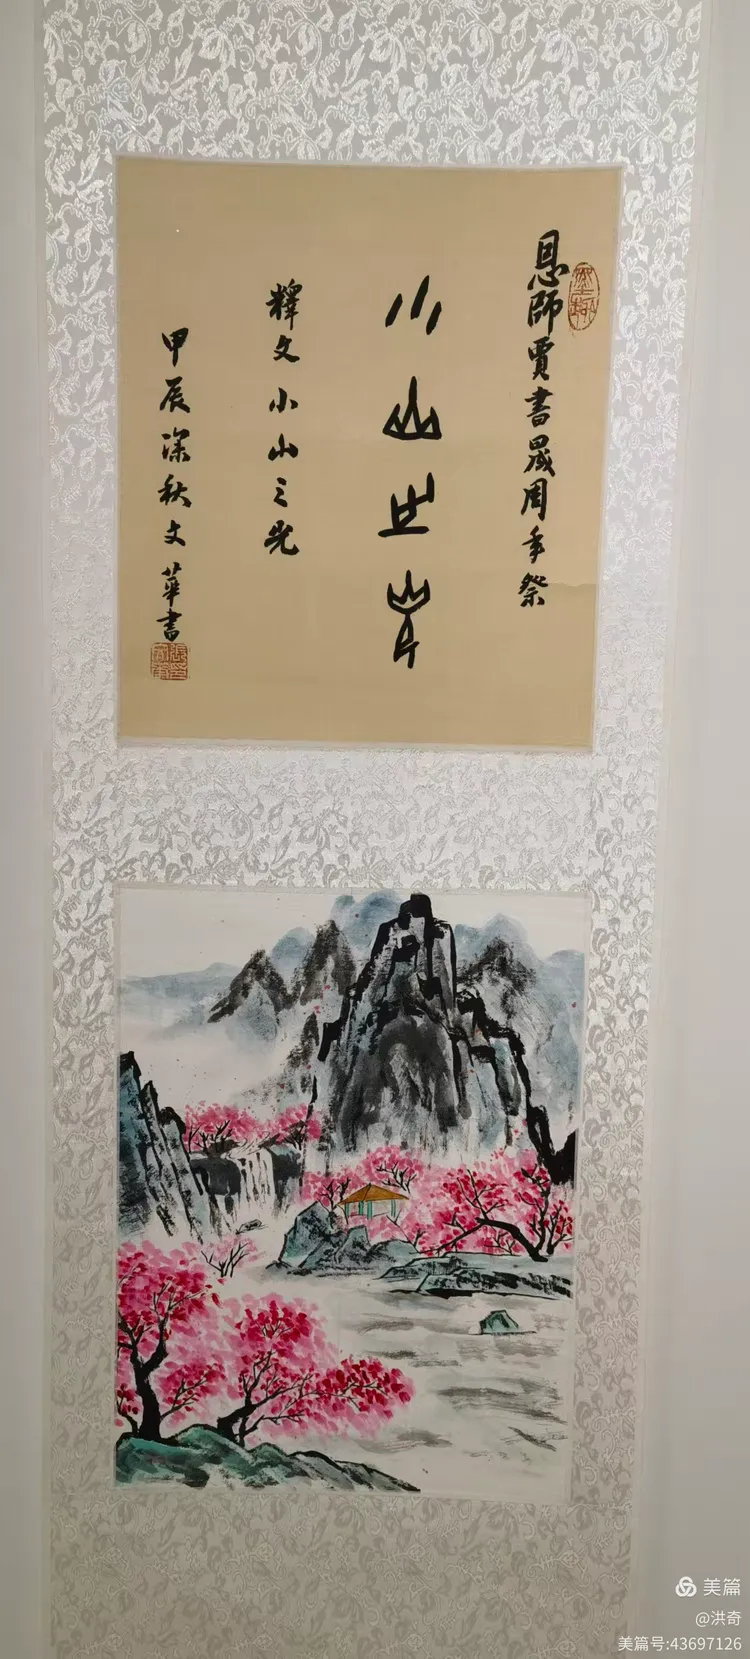 恩師賈書晟周年祭
小山之光
釋文小山之光
甲辰深秋文華書
美篇
@洪奇
美篇号:43697126